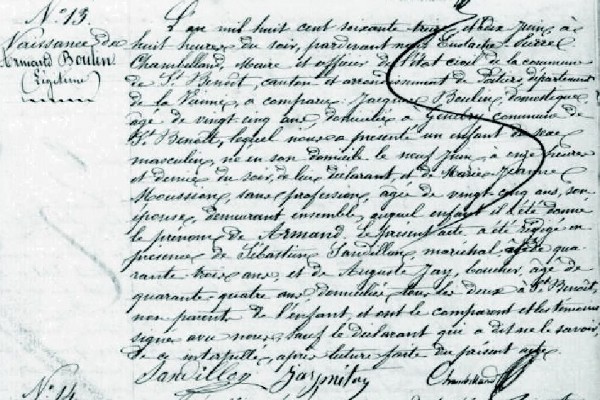 N° 13.
Naissance de
Armand Boulin
(Légitime)
L'an mil huit cent soixante trois et dix Juin, à
huit heures du soir, pardevant nous Eustache Pierre
Chambelland, Maire et officier de l'état civil de la commune
de St. Benoît, canton et arrondissement de Poitiers département
de la Vienne, a comparu: Jacques Boulin, domestique,
âgé de vingt cinq ans, domicilié à commune de
St. Benoît, lequel nous a présenté un enfant du sexe
masculin, né en son domicile le neuf Juin, à onze heures
et demie du soir, de lui déclarant et de Marie Jeanne
Moussion, sans profession, âgée de vingt cinq ans, son
épouse, demeurant ensemble, auquel enfant il a été donné
le prénom de Armand. Le présent acte a été rédigé en
présence de Sébastien Sandillon, maréchal, âgé de qua
rante trois ans, et de Auguste Jary, boucher, âgé de
quarante quatre ans domiciliés tous les deux à St. Benoît,
non parents de l'enfant et ont le comparant et les témoins
signé avec nous, sauf le déclarant qui a dit ne le savoir,
de ce interpellé, après lecture faite du présent acte
Sandillon Chambelland
N° 14.